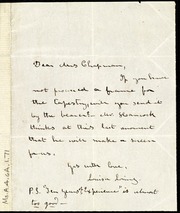 Dear Mrs Chapman,
If you have
not procured a frame for
the Tapestry, will you send it
by the bearer. Mr Hancock
thinks at this last moment
that he will make a screen
for us.
Yrs with love,
Louisa Loring
P.S. "Ten Years' Experience" is almost
too good